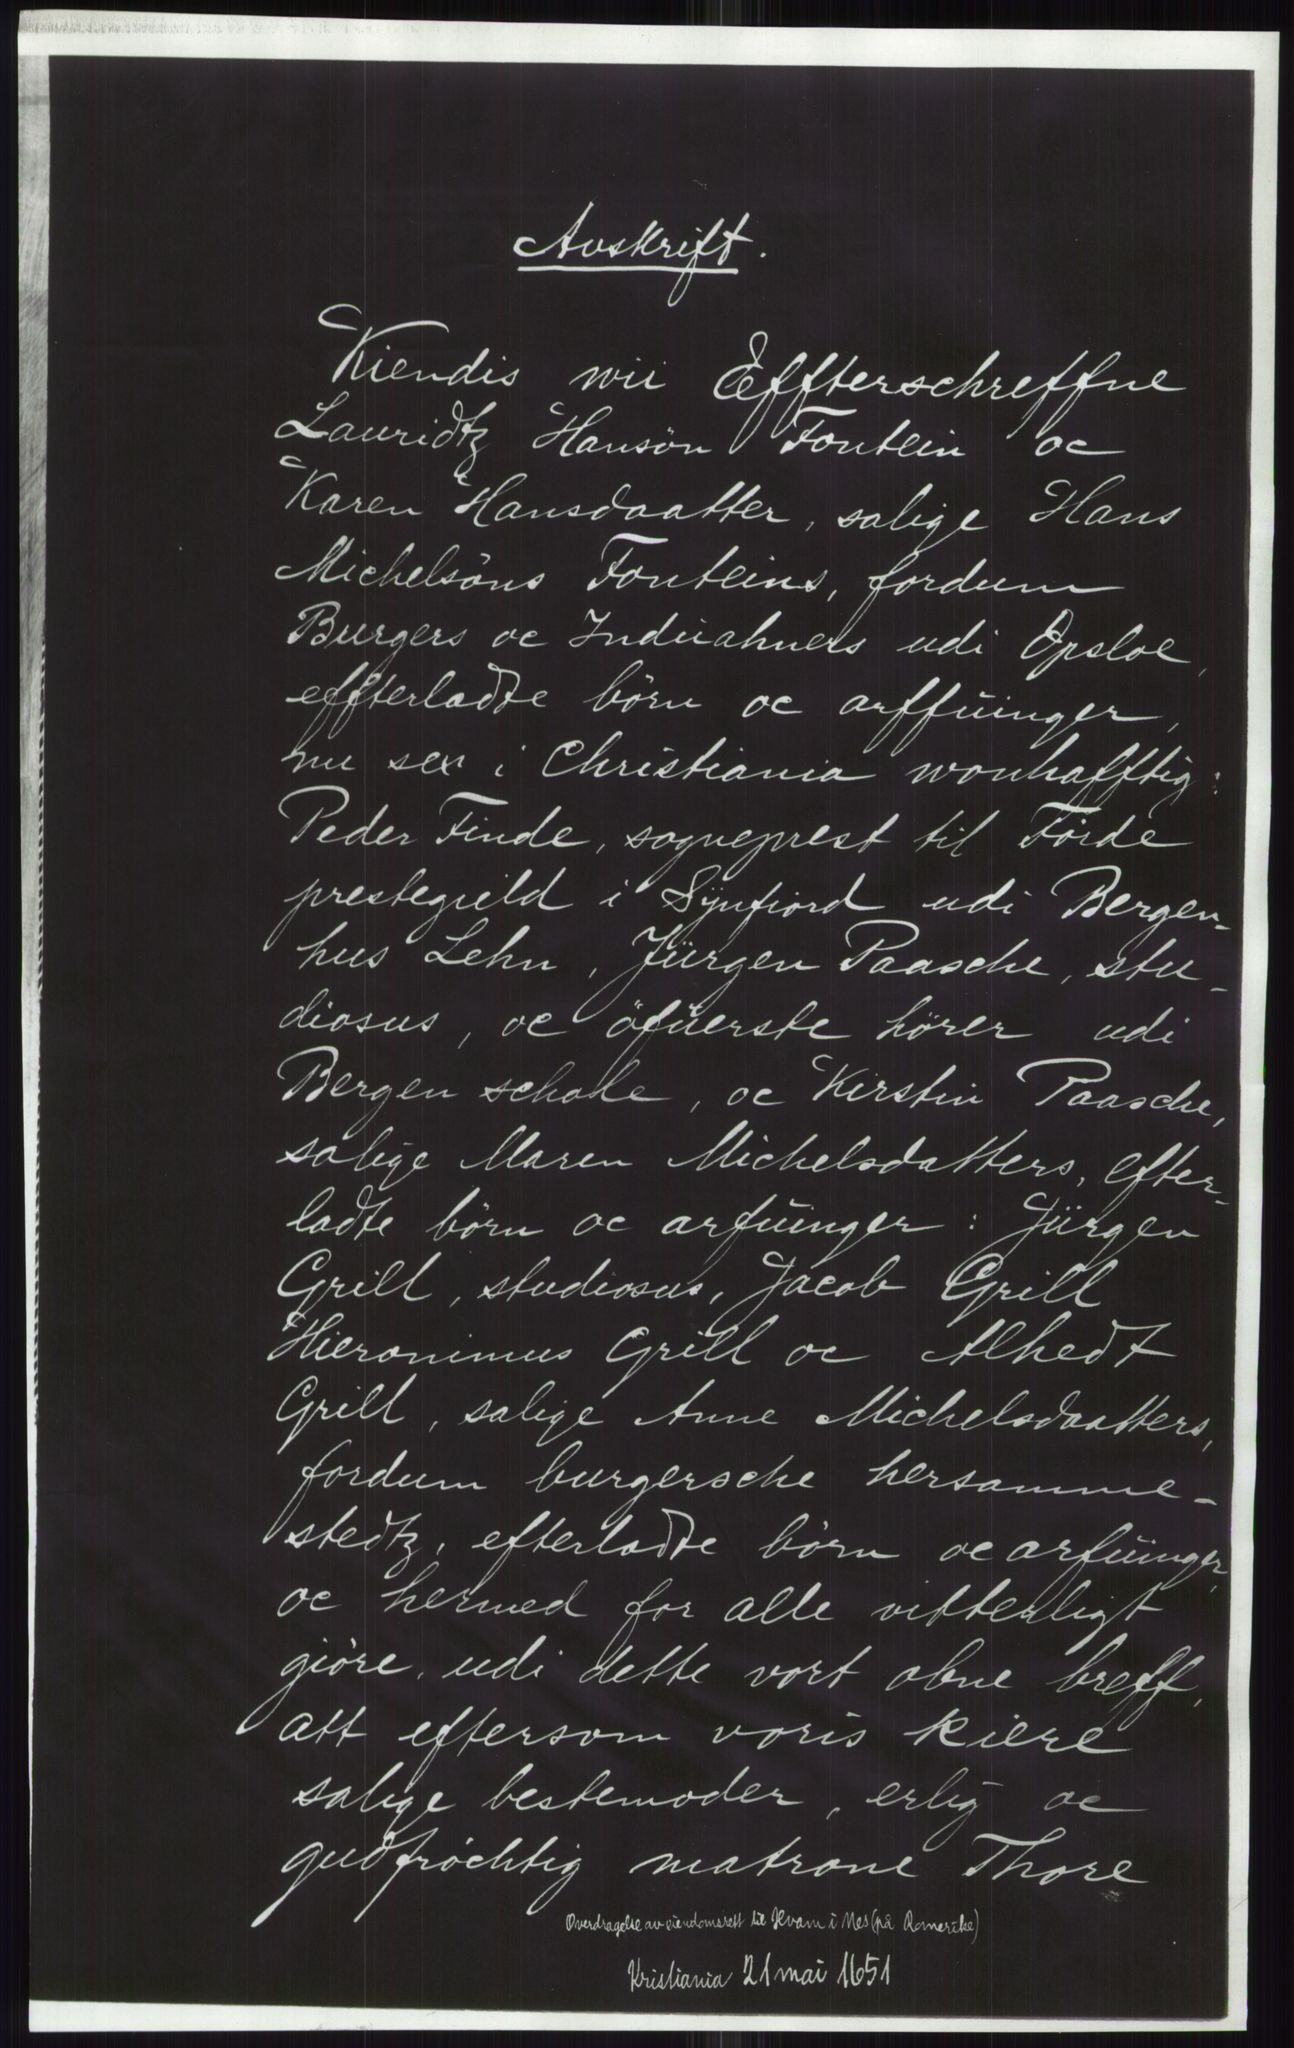 Avskrift.
Kiendis wii Effterschreffne
Lauridtz Hansön Fontein oc
Karen Hansdaatter, salige Hans
Michelsöns Fonteins, fordum
Burgers oc Induahners udi Opsloe,
effterladte börn oc arffuinger,
nu sex i Christiania wonhafftig:
Peder Finde, sogneprest til Förde
prestegield i Synfiord udi Bergen-
hus Lehn, Jürgen Paasche, stu-
diosus, oc öfuerste hörer udi
Bergen schole, oc Kirstin Paasche,
salige Maren Michelsdatters, efter-
ladte börn oc arfuinger: Jürgen
Grill, studiosus, Jacob Grill
Hieronimus Grill oc Alhedt
Grill, salige Anne Michelsdaatters,
fordum burgersche hersamme-
stedtz, efterladte börn oc arfuinger,
oc hermed for alle vitterligt
giöre, udi dette vort obne breff,
att eftersom voris kiere
salige bestemoder, erlig oc
gudfröchtig matrone Thore
Overdragelse av eiendomsrett til Hvam i Nes (på Romerike)
Kristiania 21 mai 1651